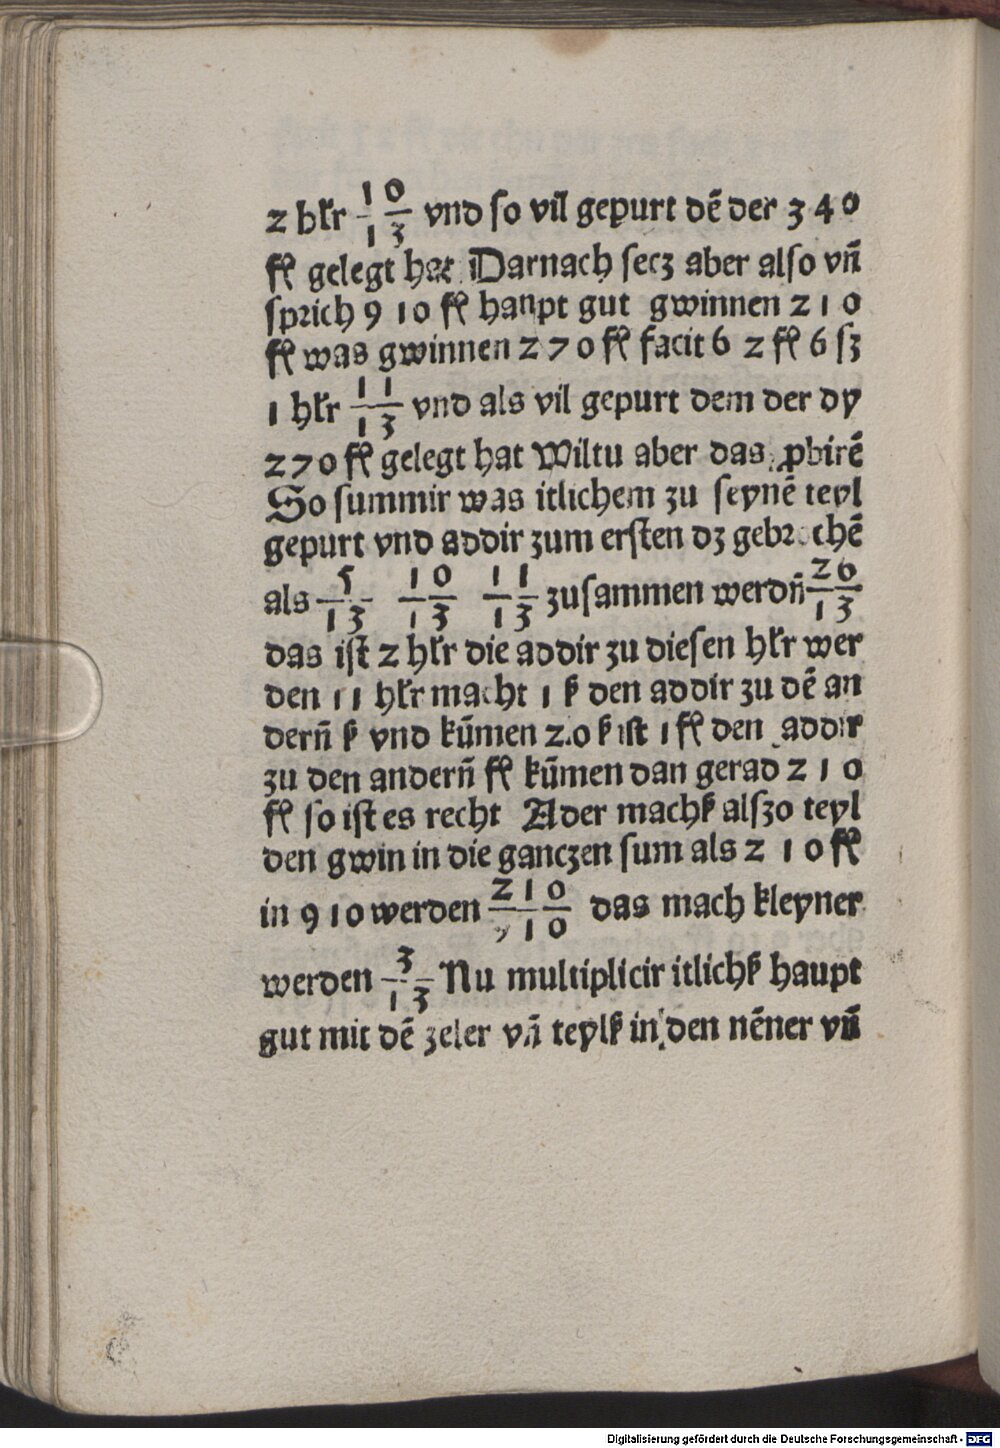 2 hlr 10/13 vnd so vil gepurt dē der 3 4 0
fl gelegt hat Darnach secz aber also vñ
sprich 9 1 0 fl haupt gut gwinnen 2 1 0
fl was gwinnen 2 7 0 fl facit 6 2 fl 6 ſz
1 hlr 11/13 vnd als vil gepurt dem der dy
2 7 0 fl gelegt hat Wiltu aber das ꝓbirē
So summir was itlichem zu seynē teyl
gepurt vnd addir zum ersten dz gebrochē
als 5/13 10/13 11/13 zusammen werdñ 26/13
das ist 2 hlr die addir zu diesen hlr wer
den 11 hlr macht 1 ꝭ den addir zu dē an
derñ ꝭ vnd kūmen 2 0 ꝭ ist 1 fl den addir
zu den anderñ fl kūmen dan gerad 2 1 0
fl so ist es recht Ader machꝭ alszo teyl
den gwin in die ganczen sum als 2 1 0 fl
in 9 1 0 werden 210/910 das mach kleyner
werden 3/13 Nu multiplicir itlichꝭ haupt
gut mit dē zeler vñ teylꝭ in den nēner vñ
Digitalisierung gefördert durch die Deutsche Forschungsgemeinschaft - DFG